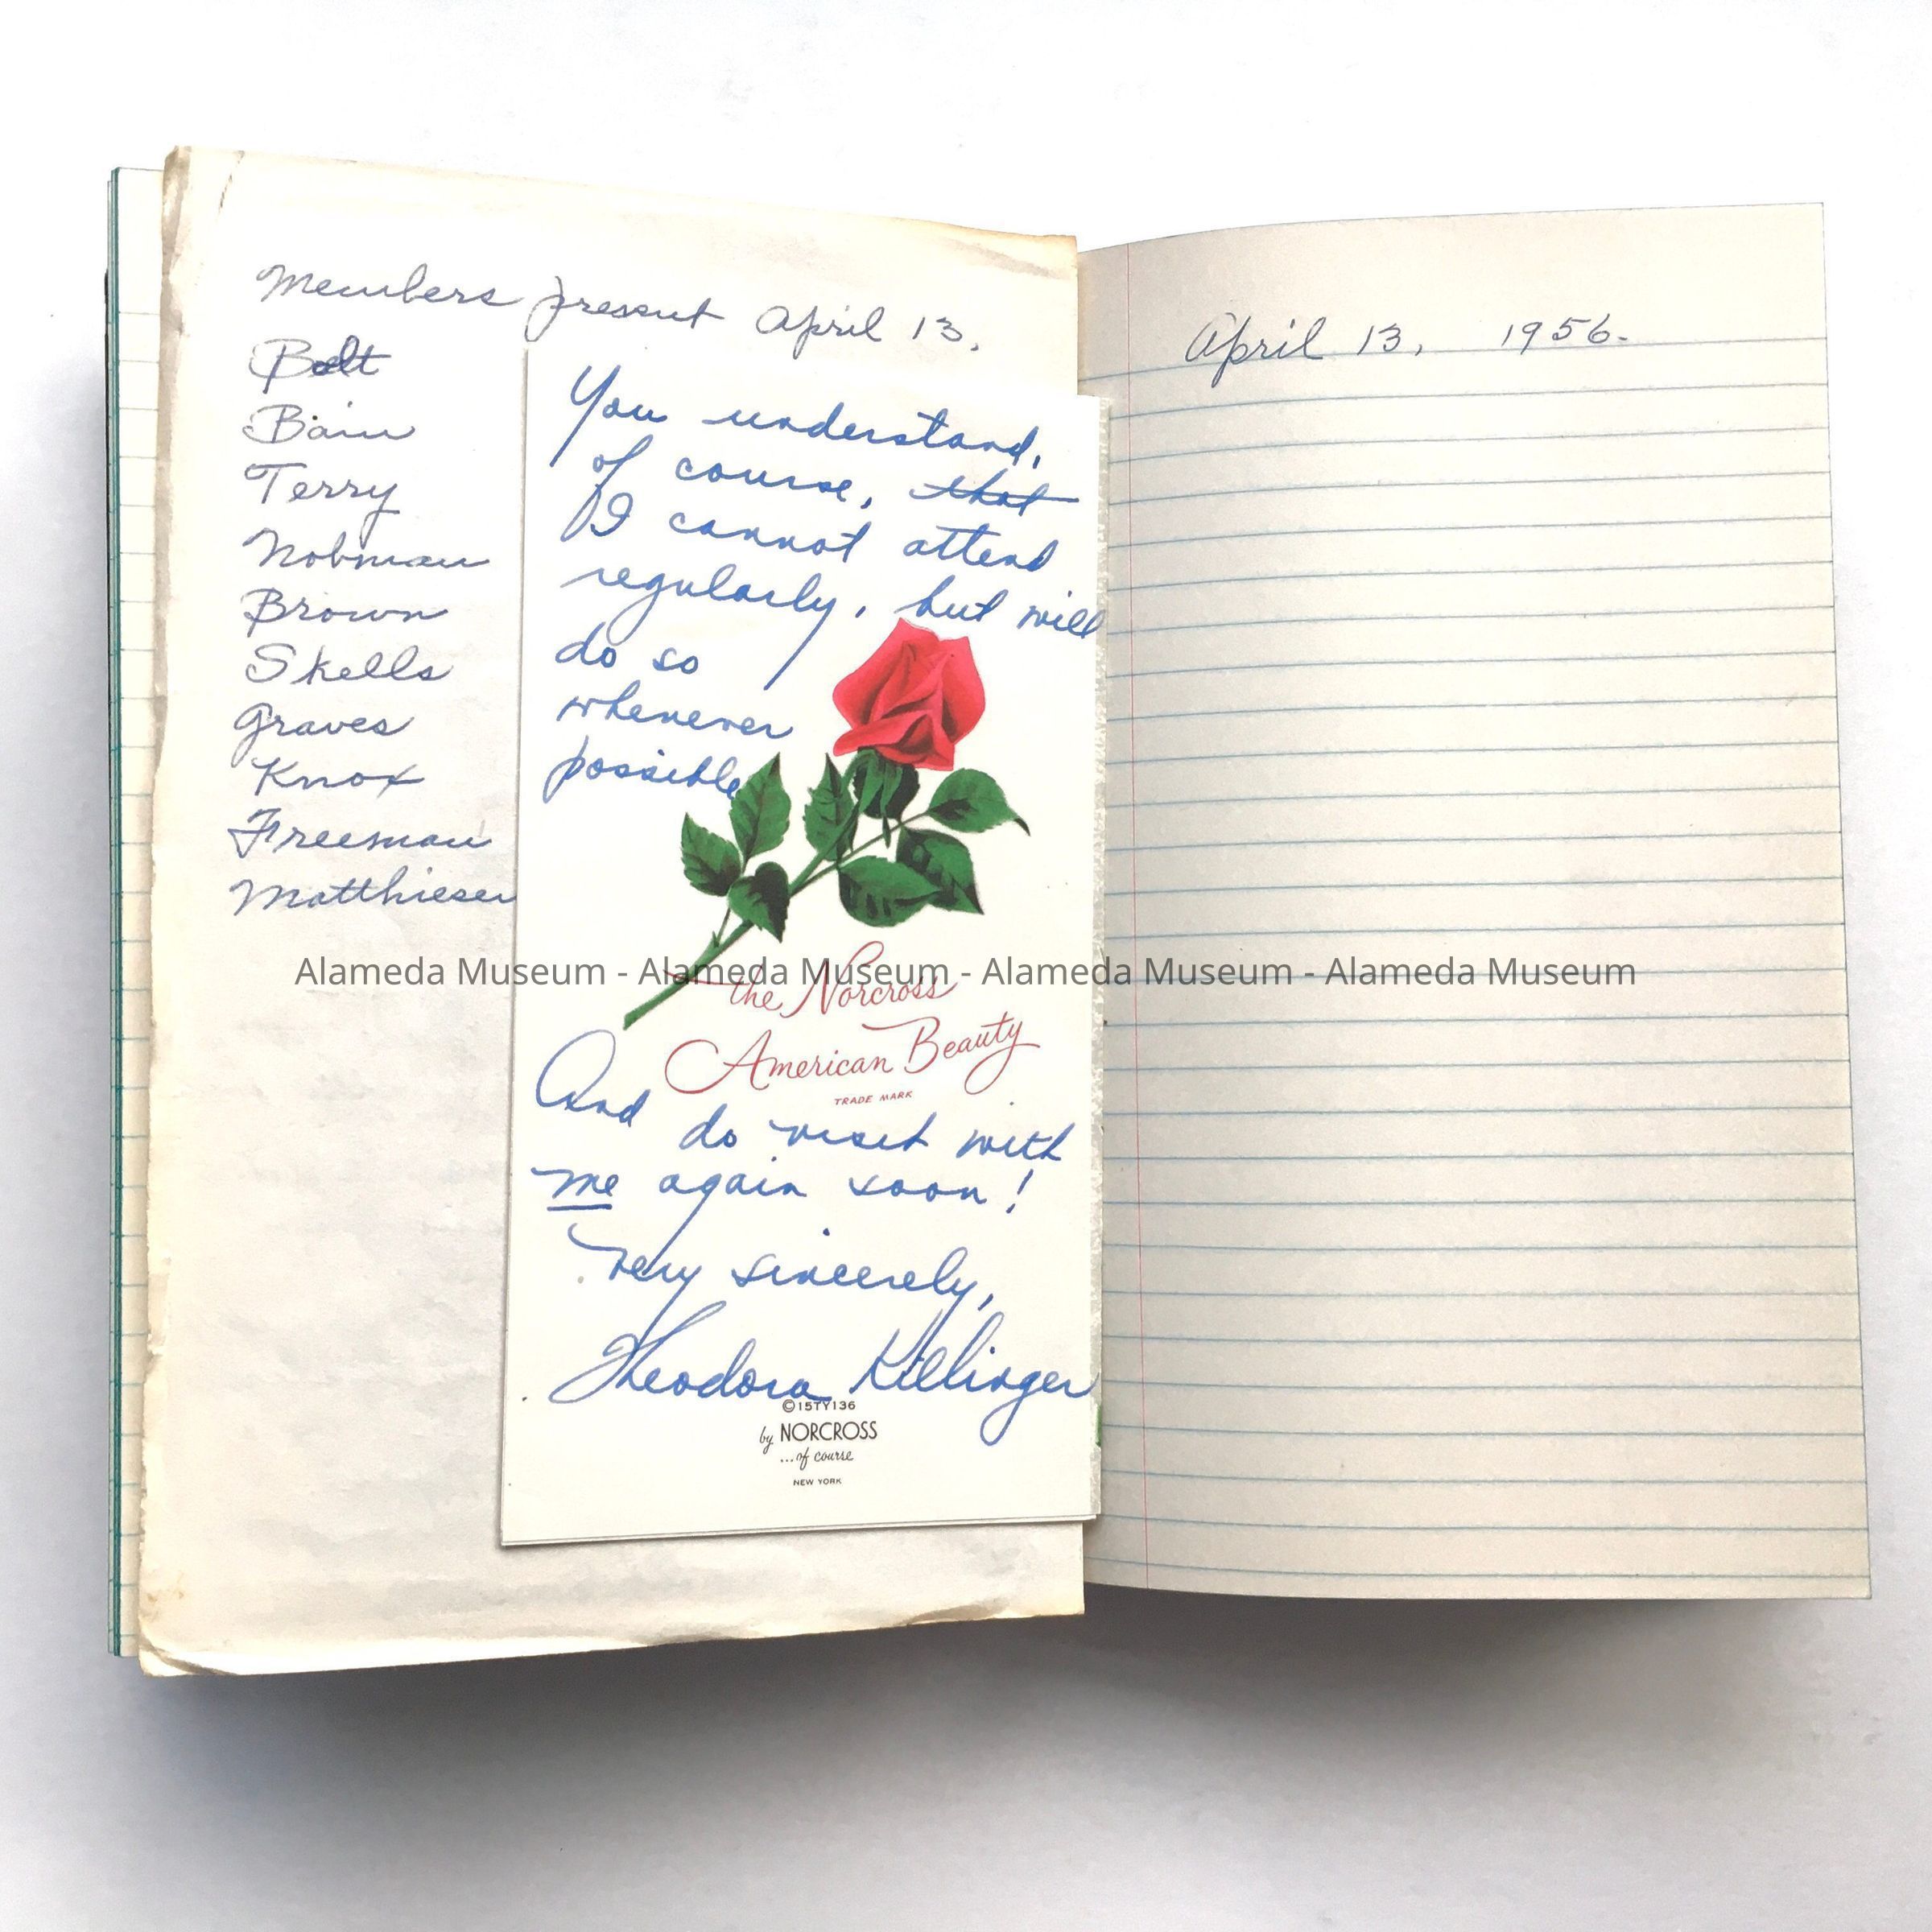 Members present April 13,
Bolt
Bain
Terry
Nobman
Brown
Skells
Graves
Knox
Freeman
Matthiesen
You understand,
of course, that
I cannot attend
regularly, but will
do so
whenever
possible
the Norcross
American Beauty
TRADE MARK
And do visit with
me again soon!
Very sincerely,
Theodora Killinger
©15TY136
by NORCROSS
...of course
NEW YORK
April 13, 1956.
Alameda Museum - Alameda Museum - Alameda Museum - Alameda Museum